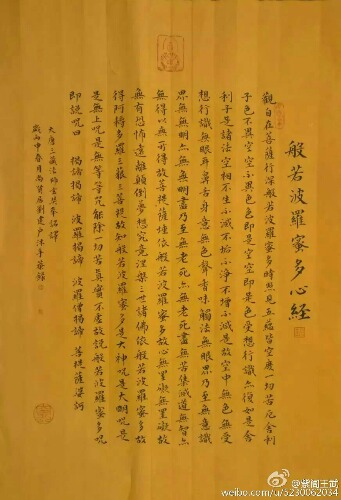 般若波羅蜜多心經
觀自在菩薩行深般若波羅蜜多時照見五蘊皆空度一切苦厄舍利
子色不異空空不異色色即是空空即是色受想行識亦復如是舍
利子是諸法空相不生不滅不垢不淨不增不減是故空中無色無受
想行識無眼耳鼻舌身意無色聲香味觸法無眼界乃至無意識
界無無明亦無無明盡乃至無老死亦無老死盡無苦集滅道無智亦
無得以無所得故菩提薩埵依般若波羅蜜多故心無罣礙無罣礙故
無有恐怖遠離顛倒夢想究竟涅槃三世諸佛依般若波羅蜜多故
得阿耨多羅三藐三菩提故知般若波羅蜜多是大神咒是大明咒是
是無上咒是無等等咒能除一切苦真實不虛故說般若波羅蜜多咒
即說咒曰 揭諦揭諦 波羅揭諦 波羅僧揭諦 菩提薩婆訶
大唐三藏法師玄奘奉詔譯
歲丙申春月尚賢居劉建戶沐手恭錄
@紫阁王茜
weibo.com/u/5230062034